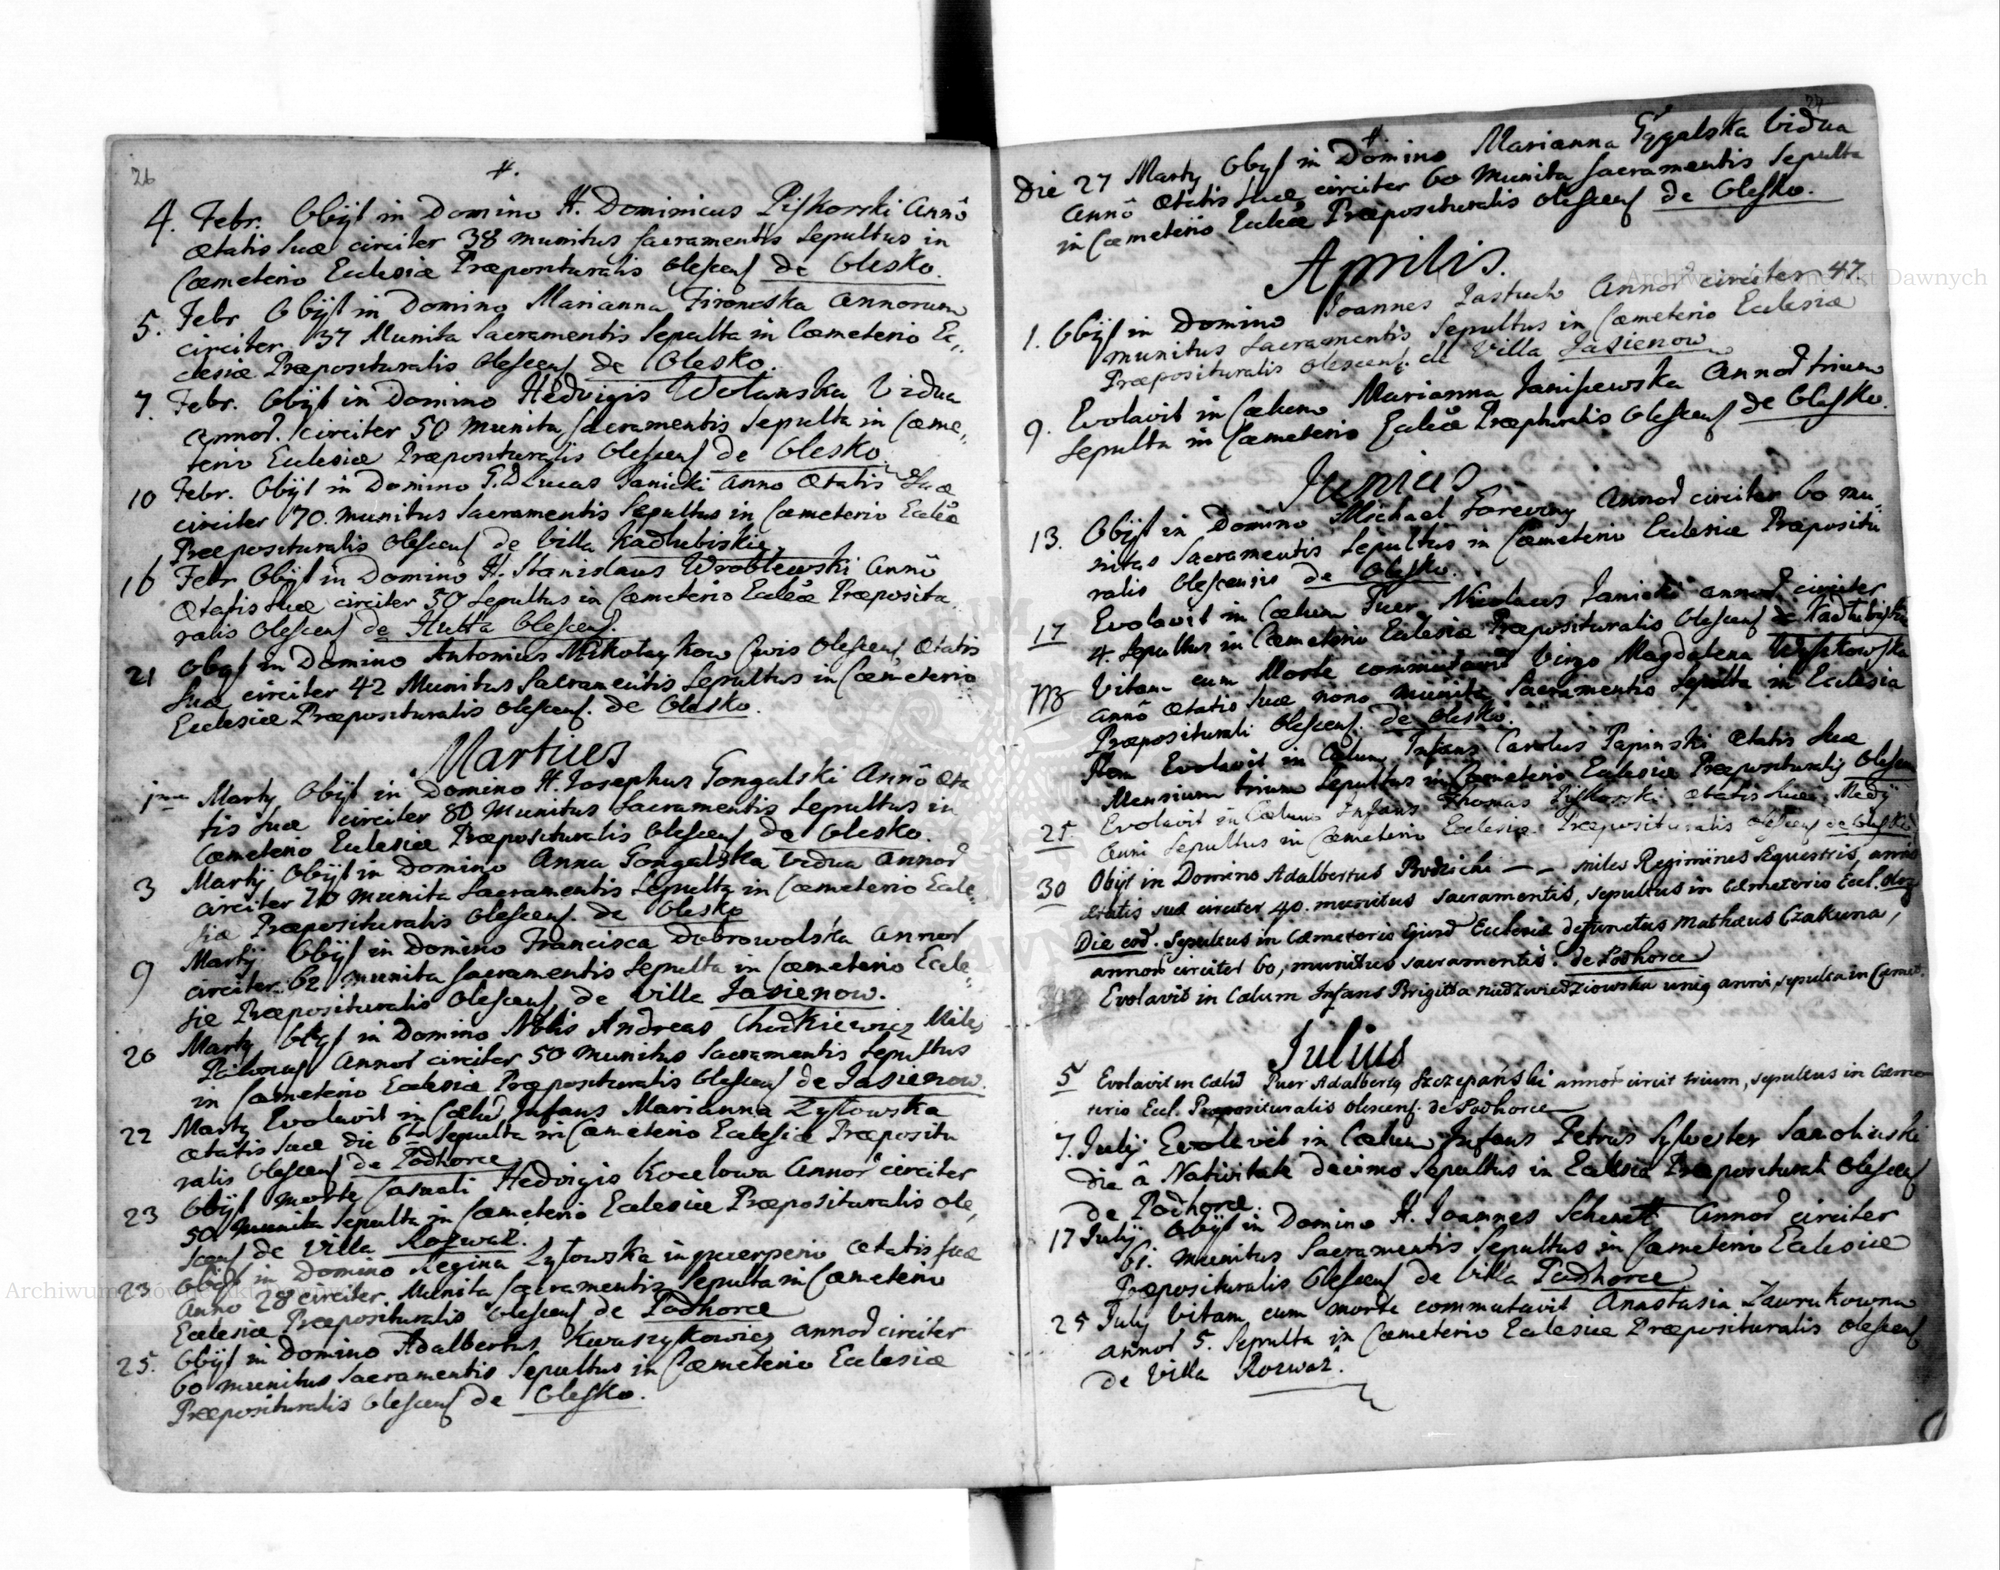 26
#.
4. Febr. Obijt in Domino H. Dominicus Piskorski Annô
Ætatis suæ circiter 38 munitus sacramentis sepultus in
Cæmeterio Ecclesiæ Præposituralis Olescens de Olesko.
5. Febr Obijt in Domino Marianna annorum
circiter 37 Munita Sacramentis Sepulta in Cœmeterio Ec-
clesiæ Præposituralis Olescens de Olesko.
7. Febr. Obijt in Domino Hedvigis Wolanska Vidua
annor. circiter 50 munita sacramentis sepulta in Cœme-
terio Ecclesiæ Præposituralis Olescens de Olesko.
10 Febr. Obijt in Domino G.D Lucas Janicki anno ætatis suæ
circiter 70. munitus sacramentis sepultus in Cœmeterio Eccleæ
Præposituralis Olescens de Villa Kadłubiskie
16 Febr Obijt in Domino H. Stanislaus Wroblewski Annô
Ætatis suæ circiter 50 sepultus in Cœmeterio Eccleæ Præpositu
ralis Olescens de Hutta Olescens
21 Obijt in Domino Antonius Mikołaykow Civis Olescens, Ætatis
suæ circiter 42 Munitus Sacramentis Sepultus in Cœmeterio
Ecclesiæ Præposituralis Olescens. de Olesko.
Martius
1ma Martij Obijt in Domino H. Josephus Gongalski Annô Æta
tis suæ circiter 80 Munitus Sacramentis Sepultus in
Cœmeterio Ecclesiæ Præposituralis Olescens de Olesko.
3 Martij Obijt in Domino Anna Gongalska Vidua Annor
circiter 70 munita sacramentis sepulta in Cœmeterio Eccle-
siæ Præposituralis Olescens. de Olesko
9 Martij Obijt in Domino Francisca Dobrowolska Annor
circiter 62 munita sacramentis sepulta in Cœmeterio Eccle-
siæ Præposituralis Olescens de Ville Jasienow.
20 Martij Obijt in Domino Nblis Andreas Chodkiewicz Miles
Annor circiter 50 munitus sacramentis sepultus
in Cœmeterio Ecclesiæ Præposituralis Olescens de Jasienow.
22 Martij Evolavit in Cœlū Infans Marianna Zytowska
ætatis suæ die 6ta sepulta in Cœmeterio Ecclesiæ Præpositu
ralis Olescens de Podhorce
23 Obijt morte casuali Hedvigis Kocełowa Annor circiter
50 munita sepulta in Cœmeterio Ecclesiæ Præposituralis Ole,
scens de Villa Rozważ.
23 Obijt in Domino Regina Zytowska in puerperio ætatis suæ
Anno 28 circiter Munita sacramentis sepulta in Cœmeterio
Ecclesiæ Præposituralis Olescens de Podhorce
25. Obijt in Domino Adalbertus annor circiter
60 munitus sacramentis sepultus in Cœmeterio Ecclesiæ
Præposituralis Olescens de Olesko.
27
#
Die 27 Martij Obijt in Domino Marianna Vidua
Annô ætatis suæ circiter 60 Munita sacramentis sepulta
in Cœmeterio Eccleæ Præposituralis Olescens de Olesko.
Aprilis.
1. Obijt in Domino Joannes Annor circiter 47
munitus sacramentis sepultus in Cœmeterio Ecclesiæ
Præposituralis Olescens. de Villa Jasienow
9. Evolavit in Cœlum Marianna Janiszewska Annor trium
sepulta in Cœmeterio Eccleæ Præpturalis Olescens de Olesko.
Junius
13. Obijt in Domino Michael Annor circiter 60 mu-
nitus sacramentis sepultus in Cœmeterio Ecclesiæ Præpositu
ralis Olescensis de Olesko.
17 Evolavit in Cœlum Puer Nicolaus Janicki annor circiter
4. sepultus in Cœmeterio Ecclesiæ Præposituralis Olescens de Kadłubiskie
Vitam cum Morte commutavit Virgo Magdalena Wyszkowska
annô ætatis suæ nono munita sacramentis sepulta in Ecclesia
Præpositurali Olescens. de Olesko.
Item Evolavit in Cœlum Infans Carolus Papinski ætatis suæ
Mensium trium sepultus in Cœmeterio Ecclesiæ Præposituralis Olescen
25 Evolavit in Cœlum Infans Thomas Piskorski ætatis suæ Medÿ
Anni sepultus in Cœmeterio Ecclesiæ Præposituralis Olescens de Olesko
30 Obijt in Domino Adalbertus Brozicki — - miles Regiminis Equestris, anno
ætatis suæ circiter 40. munitus sacramentis, sepultus in Cæmeterio Eccl.
Die eod. Sepultus in Cæmeterio Ejusd Ecclesiæ defunctus Mathæus Czakuna,
annor circiter 60, munitus sacramentis. de Podhorce
Evolavit in Cælum Infans Brigitta Niedzwiedziowska unius anni, sepulta in Cœmet.
Julius
5 Evolavit in Cælū Puer Adalbertq Szczepański annor circit trium, sepultus in Cæme
terio Eccl. Præposituralis Olescens. de Podhorce
7. Julij Evolavit in Cœlum Infans Petrus Sylvester
die â Nativitate decimo sepultus in Ecclesia Præposituali Olescens
de Podhorce.
17 Julij Obijt in Domino H. Joannes Schmett Annor circiter
61. munitus sacramentis sepultus in Cœmeterio Ecclesiæ
Præposituralis Olescens de Villa Podhorce
25 Julij Vitam cum morte commutavit Anastasia Zawrukowna
annor 5. sepulta in Cœmeterio Ecclesiæ Præposituralis Olescens
de Villa Rozważ.
Archiwum Główne Akt Dawnych
Archiwum Główne Akt Dawnych